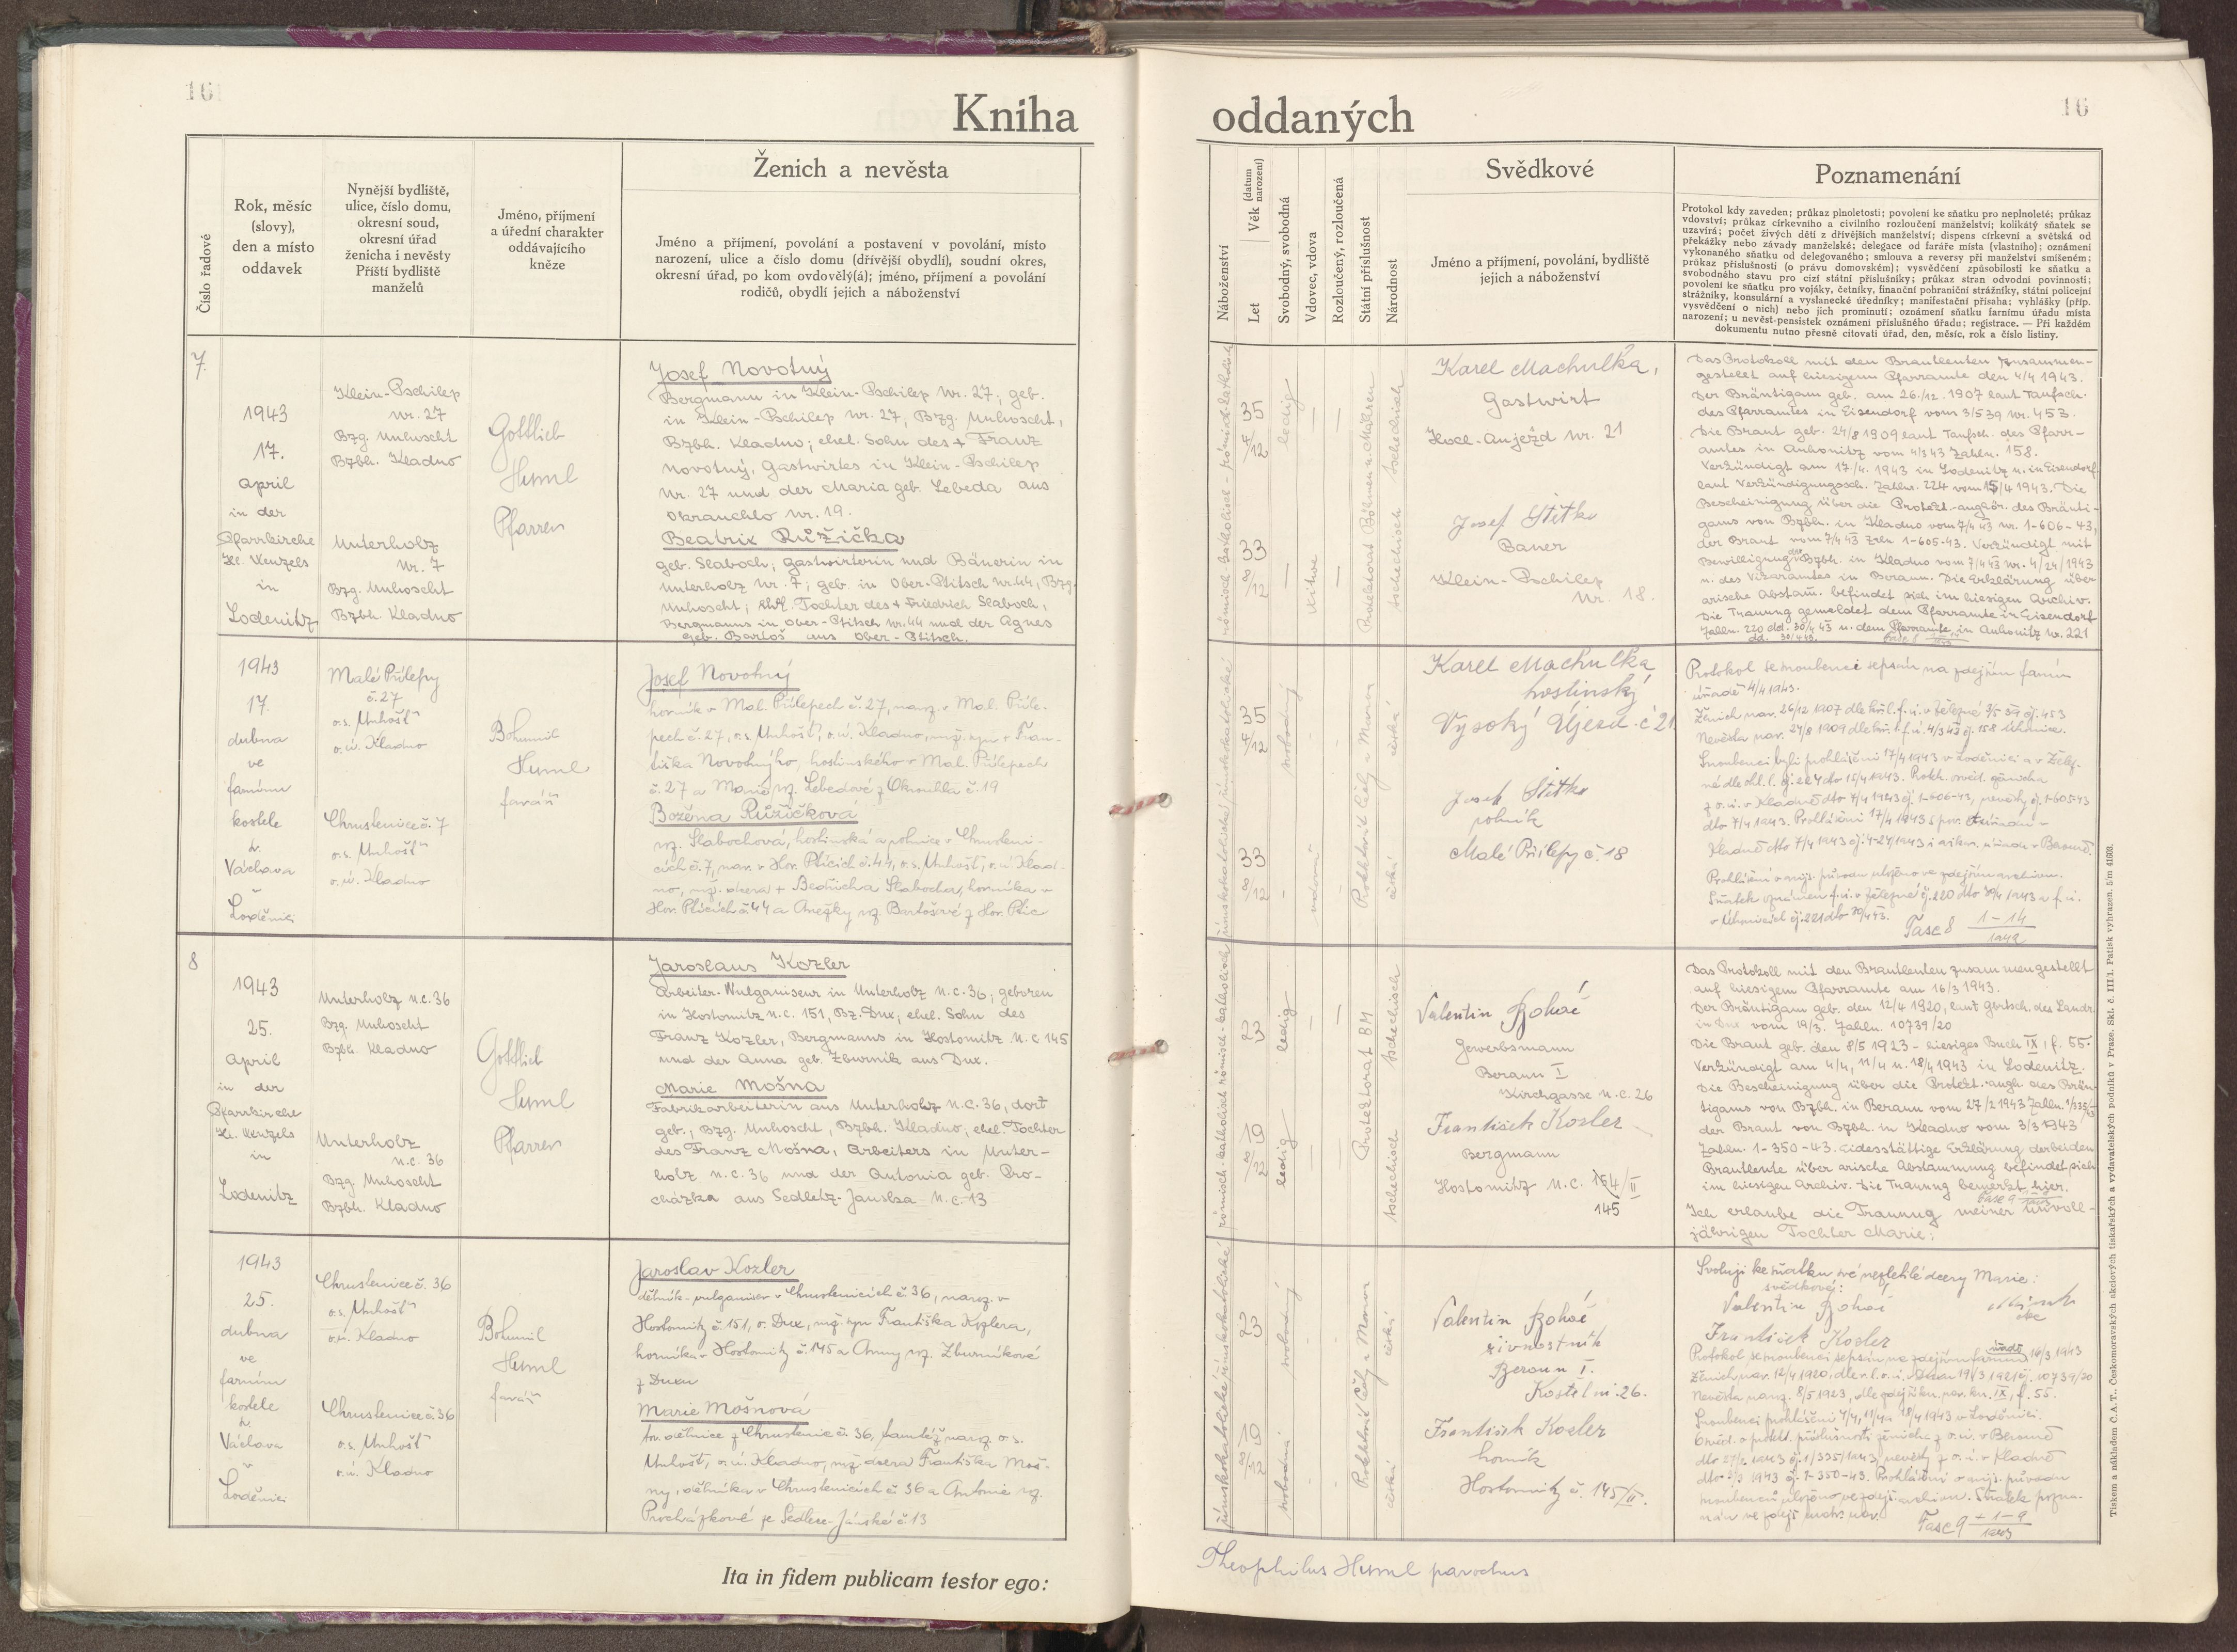 16
Kniha
Číslo řadové
Rok, měsíc
(slovy),
den a místo
oddavek
Nynější bydliště,
ulice, číslo domu,
okresní soud,
okresní úřad
ženicha i nevěsty
Příští bydliště
manželů
Jméno, příjmení
a úřední charakter
oddávajícího
kněze
Ženich a nevěsta
Jméno a příjmení, povolání a postavení v povolání, místo
narození, ulice a číslo domu (dřívější obydlí), soudní okres,
okresní úřad, po kom ovdovělý(á); jméno, příjmení a povolání
rodičů, obydlí jejich a náboženství
7.
1943
17.
April
in der
Pfarrkirche
Hl. Wenzels
in
Lodenitz
Klein-Pschilep
Nr. 27
Bzg. Unhoscht
Bzbh. Kladno
Unterholz
Nr. 7
Bzg. Unhoscht
Bzbh. Kladno
Gottlieb
Huml
Pfarrer
Josef Novotný
Bergmann in Klein-Pschilep Nr. 27, geb.
in Klein-Pschilep Nr. 27, Bzg. Unhoscht,
Bzbh. Kladno; ehel. Sohn des + Franz
Novotný, Gastwirtes in Klein-Pschilep
Nr. 27 und der Maria geb. Lebeda aus
Okrauchlo Nr. 19.
Beatrix Růžička
geb. Slaboch; Gastwirterin und Bäuerin in
Unterholz Nr. 7; geb. in Ober-Ptitsch Nr. 44, Bzg.
Unhoscht; ehel. Tochter des + Friedrich Slaboch,
Bergmanns in Ober-Ptitsch Nr. 44 und der Agnes
geb. Bartoš aus Ober-Ptitsch.
1943
17.
dubna
ve
farním
kostele
sv.
Václava
v
Loděnici
Malé Přílepy
č. 27
o.s. Unhošť
o.ú. Kladno
Chrustenice č. 7
o.s. Unhošť
o.ú. Kladno
Bohumil
Huml
farář
Josef Novotný
horník v Mal. Přílepech č. 27, naroz. v Mal. Příle-
pech č. 27, o.s. Unhošť, o.ú. Kladno, mž. syn + Fran-
tiška Novotného, hostinského v Mal. Přílepech
č. 27 a Marie roz. Lebedové z Okrouhla č. 19
Božena Růžičková
roz. Slabochová, hostinská a rolnice v Chrusteni-
cích č. 7, nar. v Hor. Pticích č. 44, o.s. Unhošť, o.ú. Klad-
no, mž. dcera + Bedřicha Slabocha, horníka v
Hor. Pticích č. 44 a Anežky roz. Bartošové z Hor. Ptic
8
1943
25.
April
in der
Pfarrkirche
Hl. Wenzels
in
Lodenitz
Unterholz N.C. 36
Bzg. Unhoscht
Bzbh. Kladno
Unterholz
N.C. 36
Bzg. Unhoscht
Bzbh. Kladno
Gottlieb
Huml
Pfarrer
Jaroslaus Kozler
Arbeiter-Wulganiseur in Unterholz N.C. 36; geboren
in Hostomitz N.C. 151, Bz. Dux; ehel. Sohn des
Franz Kozler, Bergmanns in Hostomitz N.C. 145
und der Anna geb. Zburnik aus Dux.
Marie Mošna
Fabrikarbeiterin aus Unterholz N.C. 36, dort
geb., Bzg. Unhoscht, Bzbh. Kladno, ehel. Tochter
des Franz Mošna, Arbeiters in Unter-
holz N.C. 36 und der Antonia geb. Pro-
cházka aus Sedletz-Janska N.C. 13
1943
25.
dubna
ve
farním
kostele
sv.
Václava
v
Loděnici
Chrustenice č. 36
o.s. Unhošť
o.ú. Kladno
Chrustenice č. 36
o.s. Unhošť
o.ú. Kladno
Bohumil
Huml
farář
Jaroslav Kozler
dělník-vulganiser v Chrustenicích č. 36, naroz. v
Hostomitz č. 151, o. Dux, mž. syn Františka Kozlera,
horníka v Hostomitz č. 145 a Anny roz. Zburníkové
z Duxu
Marie Mošnová
tov. dělnice z Chrustenic č. 36, tamtéž naroz. o.s.
Unhošť, o.ú. Kladno, mž. dcera Františka Moš-
ny, dělníka v Chrustenicích č. 36 a Antonie roz.
Procházkové ze Sedlce-Jánské č. 13
Ita in fidem publicam testor ego:
oddaných
16
Náboženství
Let
Věk (datum narození)
Svobodný, svobodná
Vdovec, vdova
Rozloučený, rozloučená
Státní příslušnost
Národnost
Svědkové
Jméno a příjmení, povolání, bydliště
jejich a náboženství
Poznamenání
Protokol kdy zaveden; průkaz plnoletosti; povolení ke sňatku pro neplnoleté; průkaz
vdovství; průkaz církevního a civilního rozloučení manželství; kolikátý sňatek se
uzavírá; počet živých dětí z dřívějších manželství; dispens církevní a světská od
překážky nebo závady manželské; delegace od faráře místa (vlastního); oznámení
vykonaného sňatku od delegovaného; smlouva a reversy při manželství smíšeném;
průkaz příslušnosti (o právu domovském); vysvědčení způsobilosti ke sňatku a
svobodného stavu pro cizí státní příslušníky; průkaz stran odvodní povinnosti;
povolení ke sňatku pro vojáky, četníky, finanční pohraniční strážníky, státní policejní
strážníky, konsulární a vyslanecké úředníky; manifestační přísaha; vyhlášky (příp.
vysvědčení o nich) nebo jich prominutí; oznámení sňatku farnímu úřadu místa
narození; u nevěst-pensistek oznámení příslušného úřadu; registrace. — Při každém
dokumentu nutno přesně citovati úřad, den, měsíc, rok a číslo listiny.
römisch-katholisch - römisch-katholisch
35 4/12
33 8/12
ledig
Witwe
Protektorat Böhmen u. Mähren
tschechisch tschechisch
Karel Machulka,
Gastwirt
Hoch-Aujezd Nr. 21
Josef Štětka
Bauer
Klein-Pschilep
Nr. 18.
Das Protokoll mit den Brautleuten zusammen-
gestellt auf hiesigem Pfarramte den 4/4 1943.
Der Bräutigam geb. am 26/12. 1907 laut Taufsch.
des Pfarramtes in Eisendorf vom 3/5 39 Nr. 453.
Die Braut geb. 24/8 1909 laut Taufsch. des Pfarr-
amtes in Auhonitz vom 4/3 43 Zahln. 158.
Verkündigt am 17/4. 1943 in Lodenitz u. in Eisendorf
laut Verkündigungssch. Zahlnr. 224 vom 15/4 1943. Die
Bescheinigung über die Protekt.-angehör. des Bräuti-
gams von Bzbh. in Kladno vom 7/4 43 Nr. 1-606-43,
der Braut vom 7/4 43 Zrln 1-605-43. Verkündigt mit
Bewilligung des Bzbh. in Kladno vom 7/4 43 Nr. 4/24/1943
u. des Vikaramtes in Beraun. Die Erklärung über
arische Abstam. befindet sich im hiesigen Archiv.
Die Trauung gemeldet dem Pfarramte in Eisendorf
Zahln. 220 dd. 30/4 43 u. dem Pfarramte in Auhonitz Nr. 221
dd. 30/4 43.
římskokatolické římskokatolické
35 4/12
33 8/12
svobodný
vdova
Protektorát Čechy a Morava
česká
česká
Karel Machulka
hostinský
Vysoký Újezd č 21
Josef Štětka
rolník
Malé Přílepy č. 18
Protokol se snoubenci sepsán na zdejším farním
úřadě 4/4 1943.
Ženich nar. 26/12 1907 dle křl. f.ú. v Železné 3/5 39 čj. 453
Nevěsta nar. 24/8 1909 dle křl. f.ú. 4/3 43 čj. 158 Úhonice.
Snoubenci byli prohlášeni 17/4 1943 v Loděnici a v Želez-
né dle ohl. l. čj. 224 dto 15/4 1943. Prot. osvěd. ženicha
z o.ú. v Kladně dto 7/4 1943 čj. 1-606-43, nevěsty čj. 1-605-43
dto 7/4 1943. Prohlášeni 17/4 1943 s pov. o. úřadu v
Kladně dto 7/4 1943 čj. 4-24/1943 a vikar. úřadu v Berouně.
Prohlášení o arijs. původu uloženo ve zdejším archivu.
Sňatek oznámen f.ú. v Železné čj. 220 dto 30/4 1943 a f.ú.
v Úhonicích čj. 221 dto 30/4 43.
Fasc 8 1-14/1943
römisch-katholisch römisch-katholisch
23
19 8/12
ledig
ledig
Protektorat BM
tschechisch tschechisch
Valentin Boháč
Gewerbsmann
Beraun I
Kirchgasse N.C. 26
František Kozler
Bergmann
Hostomitz N.C. 154/II
145
Das Protokoll mit den Brautleuten zusammengestellt
auf hiesigem Pfarramte am 16/3 1943.
Der Bräutigam geb. den 12/4 1920, laut Gbrtsch. des Landr.
in Dux vom 19/3. Zahln. 10739/20
Die Braut geb. den 8/5 1923 - hiesiges Buch IX, f. 55.
Verkündigt am 4/4, 11/4 u. 18/4 1943 in Lodenitz.
Die Bescheinigung über die Protekt.-angh. des Bräu-
tigams von Bzbh. in Beraun vom 27/2 1943 Zahln. 1/335
der Braut von Bzbh. in Kladno vom 3/3 1943
Zahln. 1-350-43. Eidesstättige Erklärung der beiden
Brautleute über arische Abstammung befindet sich
im hiesigen Archiv. Die Trauung bemerkt hier.
Ich erlaube die Trauung meiner unvoll-
jährigen Tochter Marie:
římskokatolické římskokatolické
23
19 8/12
svobodný
svobodná
Protektorát Čechy a Morava
česká
česká
Valentin Boháč
živnostník
Beroun I.
Kostelní 26.
František Kozler
horník
Hostomitz č. 145/II.
Svoluji ke sňatku své nezletilé dcery Marie:
svědkové:
Valentin Boháč
František Kozler
Protokol se snoubenci sepsán na zdejším farním úřadě 16/3 1943
Ženich nar. 12/4 1920, dle r.l. o.ú. Duxu 19/3 1921 čj. 10739/20
Nevěsta naroz. 8/5 1923, dle zdejší kn. nar. kn. IX, f. 55.
Snoubenci prohlášeni 4/4, 11/4 a 18/4 1943 v Loděnici.
Osvěd. o protekt. příslušnosti ženicha z o.ú. v Berouně
dto 27/2 1943 čj. 1/335/1943, nevěsty z o.ú. v Kladně
dto 3/3 1943 čj. 1-350-43. Prohlášení o arijs. původu
snoubenců uloženo ve zdejš. archivu. Sňatek pozna-
nán ve zdejší matr. nar.
Fasc 9 + 1-9/1943
Theophilus Huml parochus
Tiskem a nákladem Č.A.T., Českomoravských akciových tiskařských a vydavatelských podniků v Praze. Skl. č. III/1. Patisk vyhrazen. 5/m 41603.